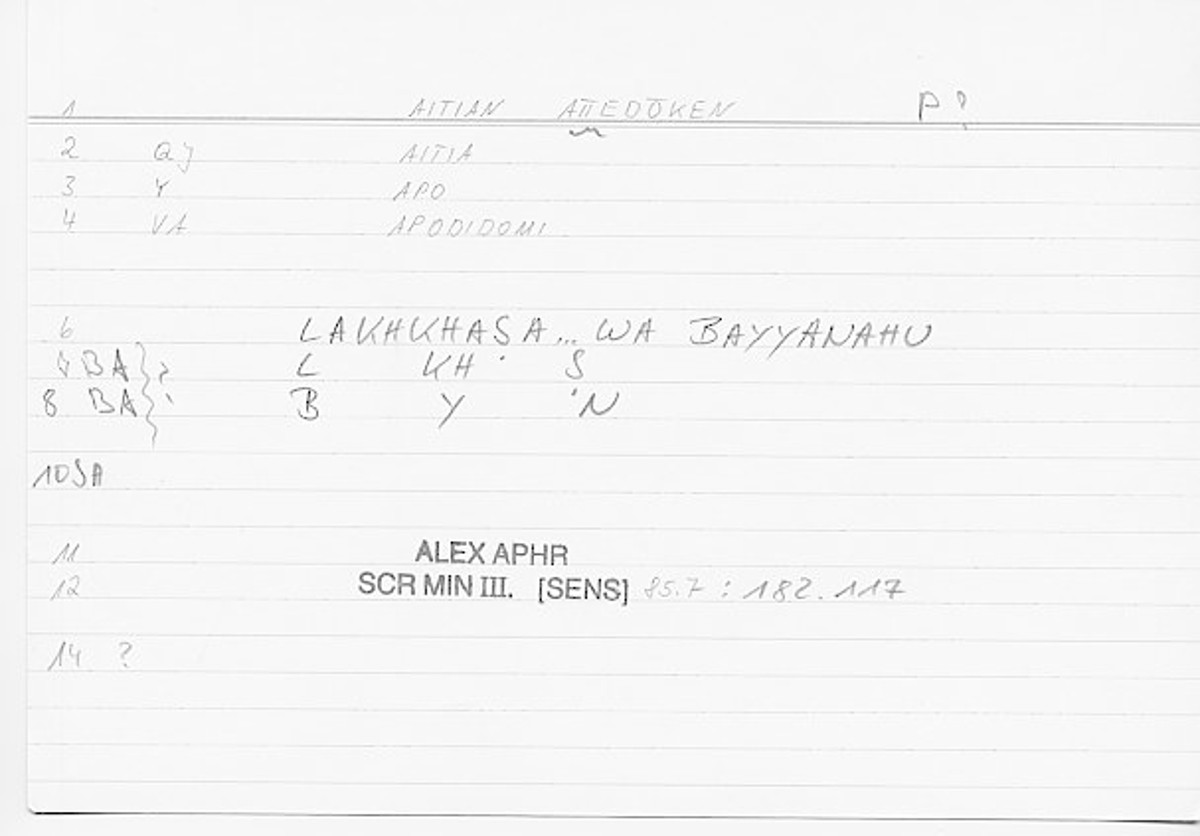 1 AITIAN APEDŌKEN P?
2 QJ AITIA
3 Y APO
4 VA APODIDOMI
6 LAKHKHASA... WA BAYYANAHU
7 BA } ? L KH S
8 BA B Y 'N
10 SA
11 ALEX APHR
12 SCR MIN III. [SENS] 85.7 : 182.117
14 ?